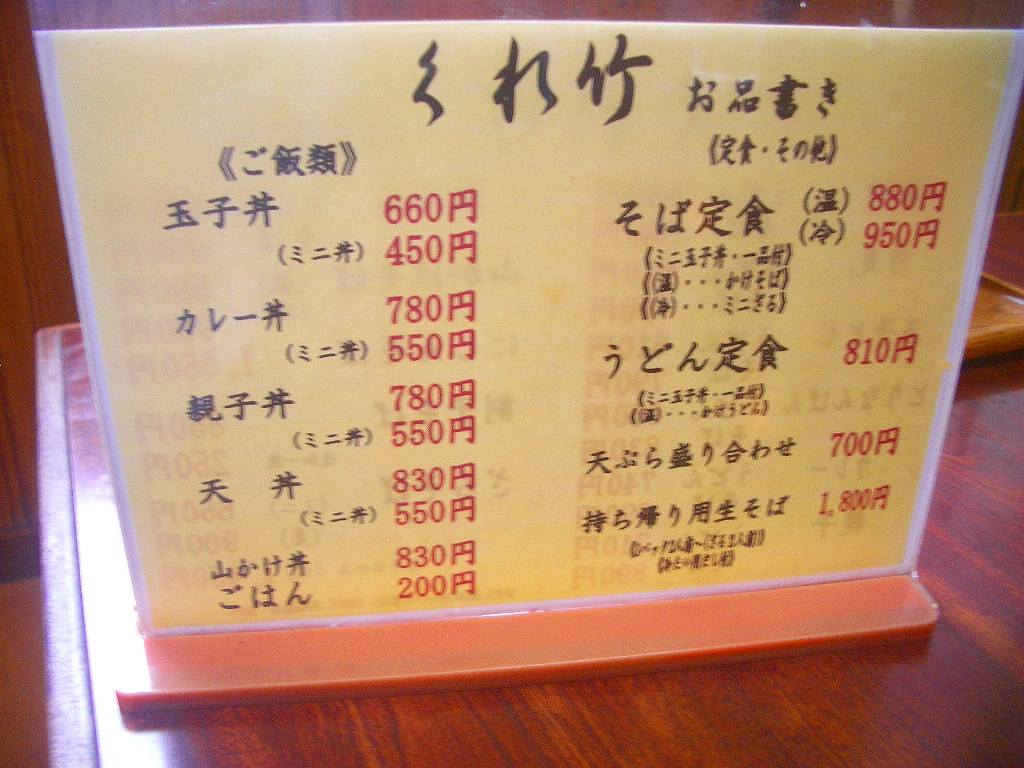 くれ竹 お品書き
《ご飯類》
玉子丼 660円
(ミニ丼) 450円
カレー丼 780円
(ミニ丼) 550円
親子丼 780円
(ミニ丼) 550円
天 丼 830円
(ミニ丼) 550円
山かけ丼 830円
ごはん 200円
《定食・その他》
そば定食 (温) 880円
(冷) 950円
《ミニ玉子丼・一品付》
《(温)・・・かけそば》
《(冷)・・・ミニざる》
うどん定食 810円
《ミニ玉子丼・一品付》
《(温)・・・かけうどん》
天ぷら盛り合わせ 700円
持ち帰り用生そば 1,800円